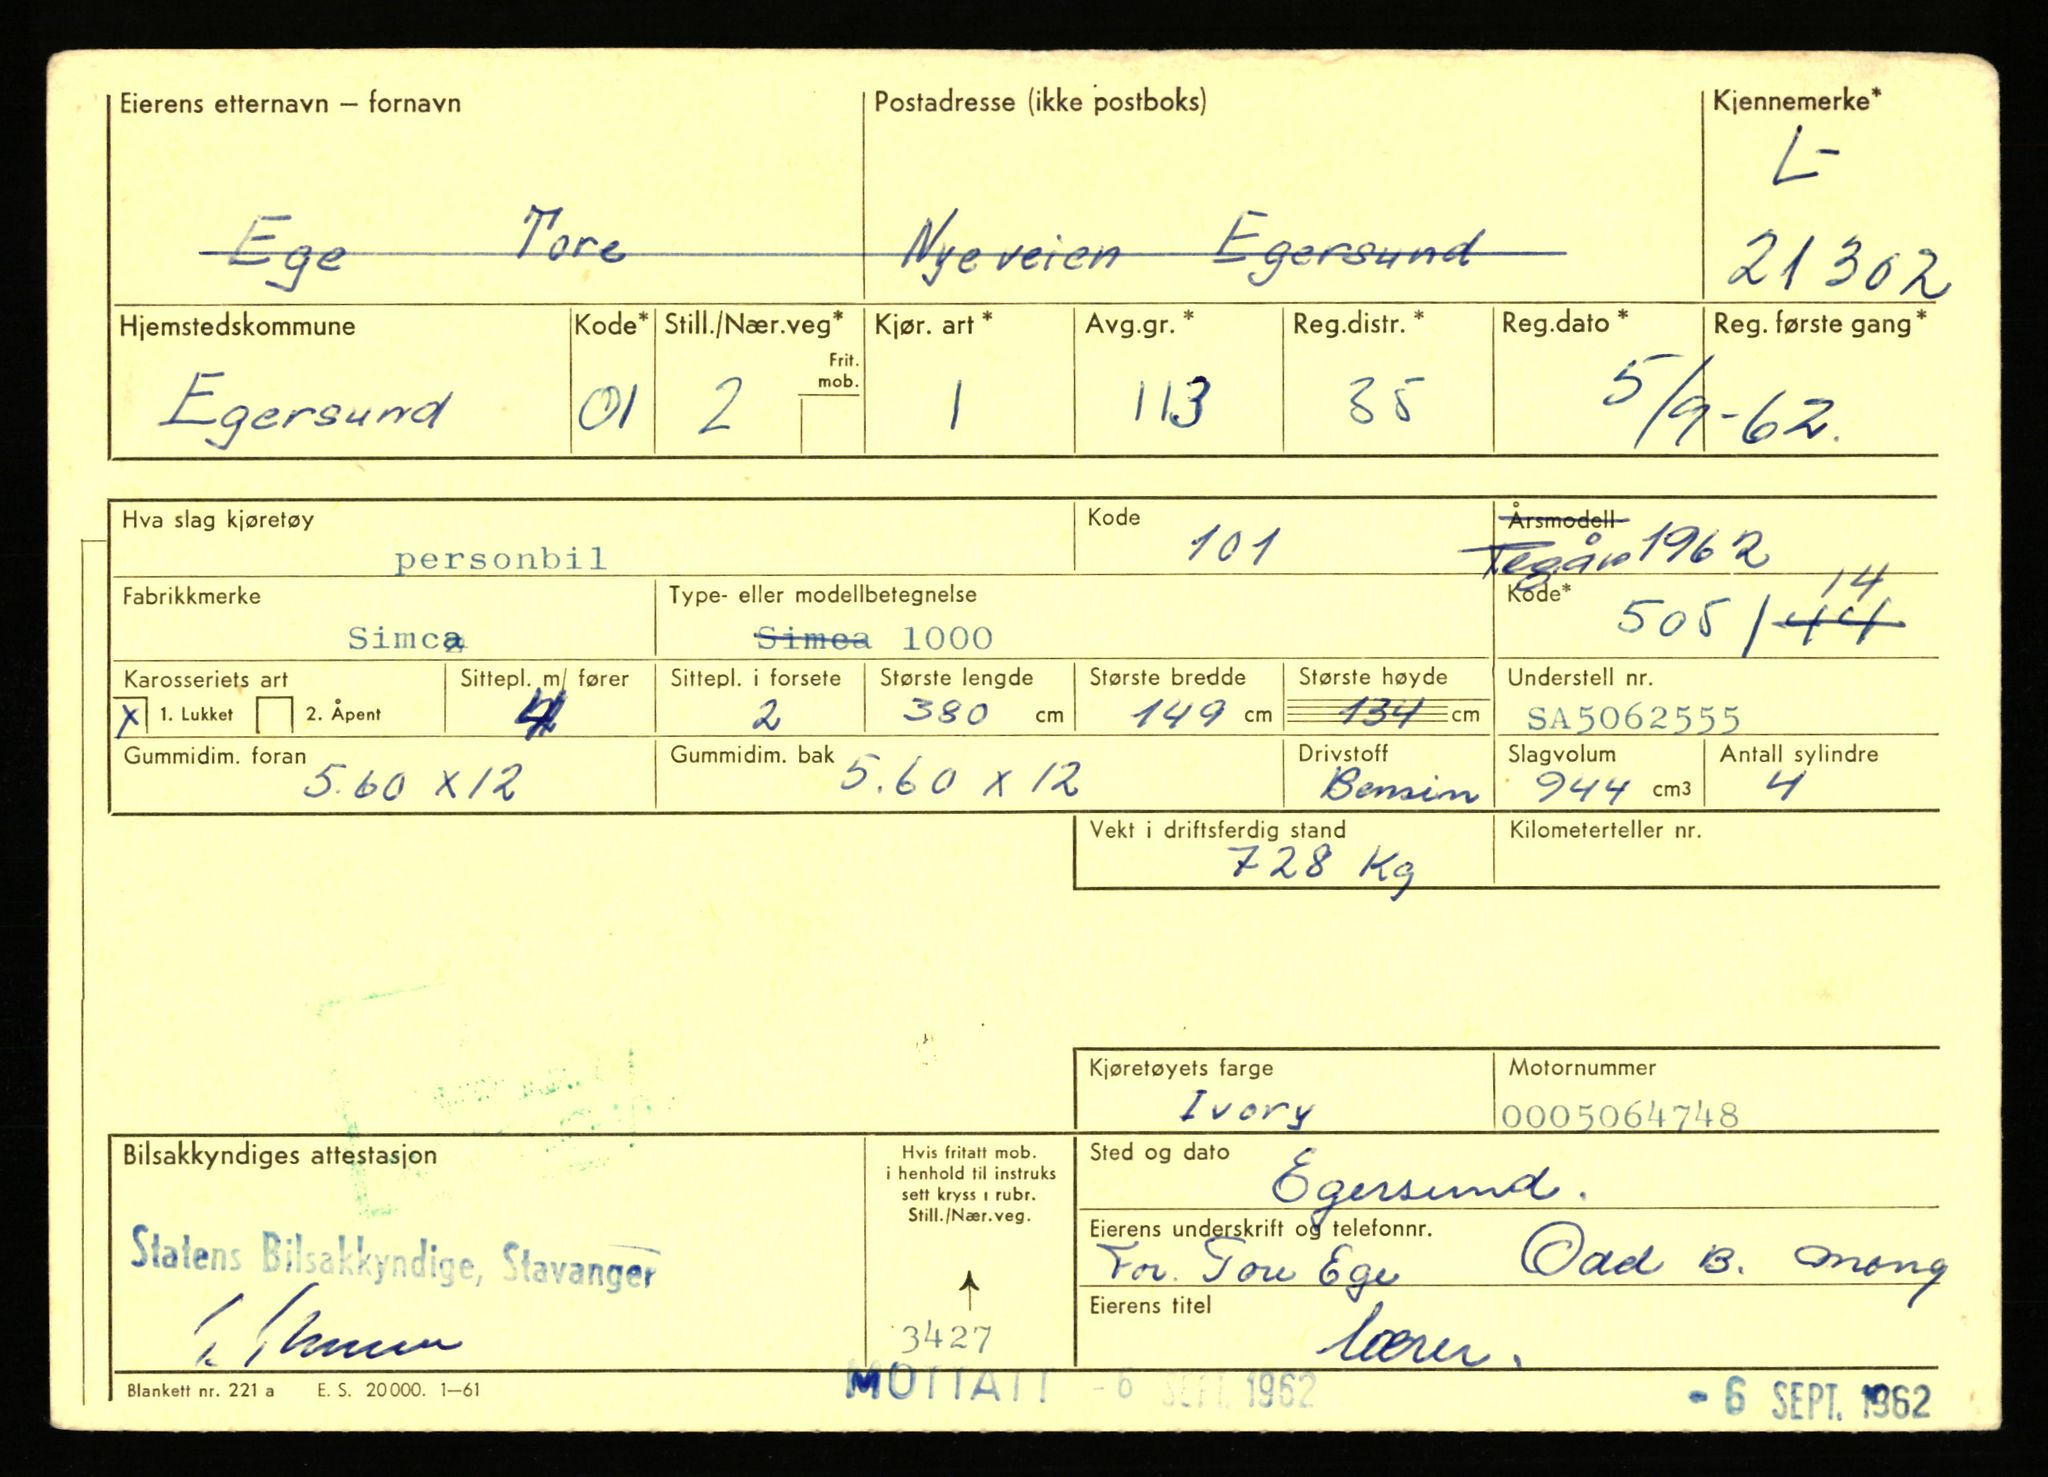 Eierens etternavn – fornavn Postadresse (ikke postboks) Kjennemerke*
L-
Ege Tore Nyeveien Egersund 21302
Hjemstedskommune Kode* Still./Nær.veg* Kjør. art* Avg.gr.* Reg.distr.* Reg.dato* Reg. første gang*
Frit. mob.
Egersund 01 2 1 113 35 5/9-62.
Hva slag kjøretøy Kode Årsmodell
personbil 101 Tegår 1962
Fabrikkmerke Type- eller modellbetegnelse Kode* 14
Simca Simca 1000 505 / 44
Karosseriets art Sittepl. m/ fører Sittepl. i forsete Største lengde Største bredde Største høyde Understell nr.
X 1. Lukket 2. Åpent 4 2 380 cm 149 cm 134 cm SA5062555
Gummidim. foran Gummidim. bak Drivstoff Slagvolum Antall sylindre
5.60 x 12 5.60 x 12 Bensin 944 cm3 4
Vekt i driftsferdig stand Kilometerteller nr.
728 Kg
Kjøretøyets farge Motornummer
Ivory 0005064748
Bilsakkyndiges attestasjon Hvis fritatt mob. Sted og dato
i henhold til instruks
sett kryss i rubr. Egersund.
Still./Nær.veg. Eierens underskrift og telefonnr.
Statens Bilsakkyndige, Stavanger For. Tore Ege Odd B. Mong
Eierens titel
3427 lærer.
Blankett nr. 221 a E. S. 20000. 1–61 MOTTATT - 6 SEPT. 1962 - 6 SEPT. 1962